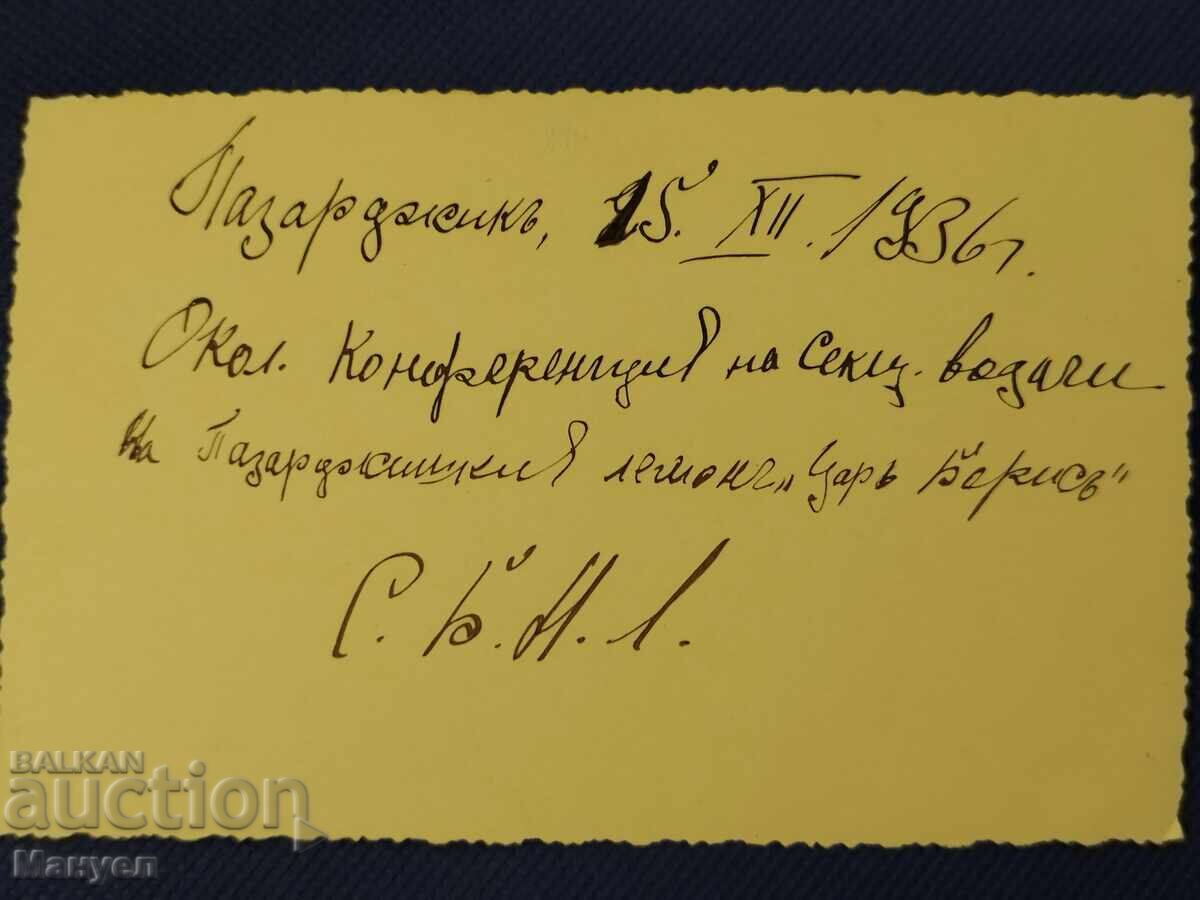 Пазарджикъ, 15. XII. 1936 г.
Окол. Конференция на Секц. водачи
на Пазарджишкия легионъ „Царь Борисъ"
С. Б. Н. Л.
BALKAN
auction
Мануел